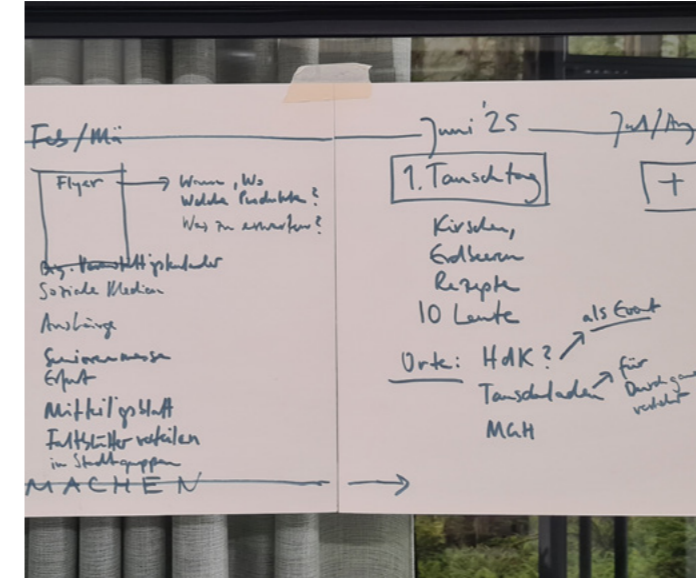 Feb/Mä
Flyer → Wann, Wo
Welche Produkte?
Was zu erwarten?
Soziale Medien
Aushänge
Seniorenmesse
Erfurt
Mitteilgsblatt
Faltblätter verteilen
in Stadtgruppen
MACHEN →
Juni '25
1. Tauschtag
Kirschen,
Erdbeeren
Rezepte
10 Leute
Orte: HdK? als Event
Tauschladen für
MGH
Jul/Aug
+